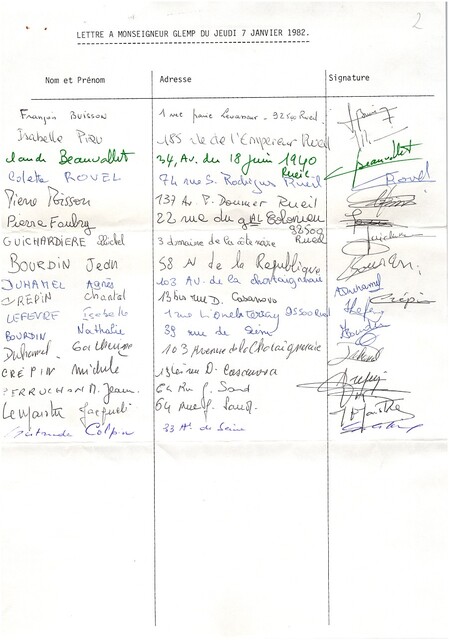 2
LETTRE A MONSEIGNEUR GLEMP DU JEUDI 7 JANVIER 1982.
Nom et Prénom Adresse Signature
François BUISSON 1 rue 92500 Rueil
Isabelle PIRU 185 de l'Empereur Rueil
Claude Beauvallet 34, Av. du 18 juin 1940 Rueil Beauvallet
Colette ROVEL 74 rue S. Rodrigues Rueil Rovel
Pierre Poisson 137 Av. P. Doumer Rueil
Pierre Faubry 22 rue du Gal Colonieu 92500
GUICHARDIERE Michel 3 domaine de la côte noire Rueil
BOURDIN Jean 58 Av de la République
DUHAMEL Agnès 103 AV. de la chataigneraie ADuhamel
CRÉPIN Chantal 13 bis rue D. Casanova Crépin
LEFEVRE Isabelle 1 rue Lionel Terray 92500 Rueil
BOURDIN Nathalie 39 rue de Seine
Duhamel Guillaume 103 Avenue de la Chataigneraie
CRÉPIN Michèle 13 bis rue D. Casanova
PERRUCHON M. Jeanne 64 Rue G. Sand
Lemaitre Jacqueli 64 Rue G. Sand
Gertrude 33 de Seine